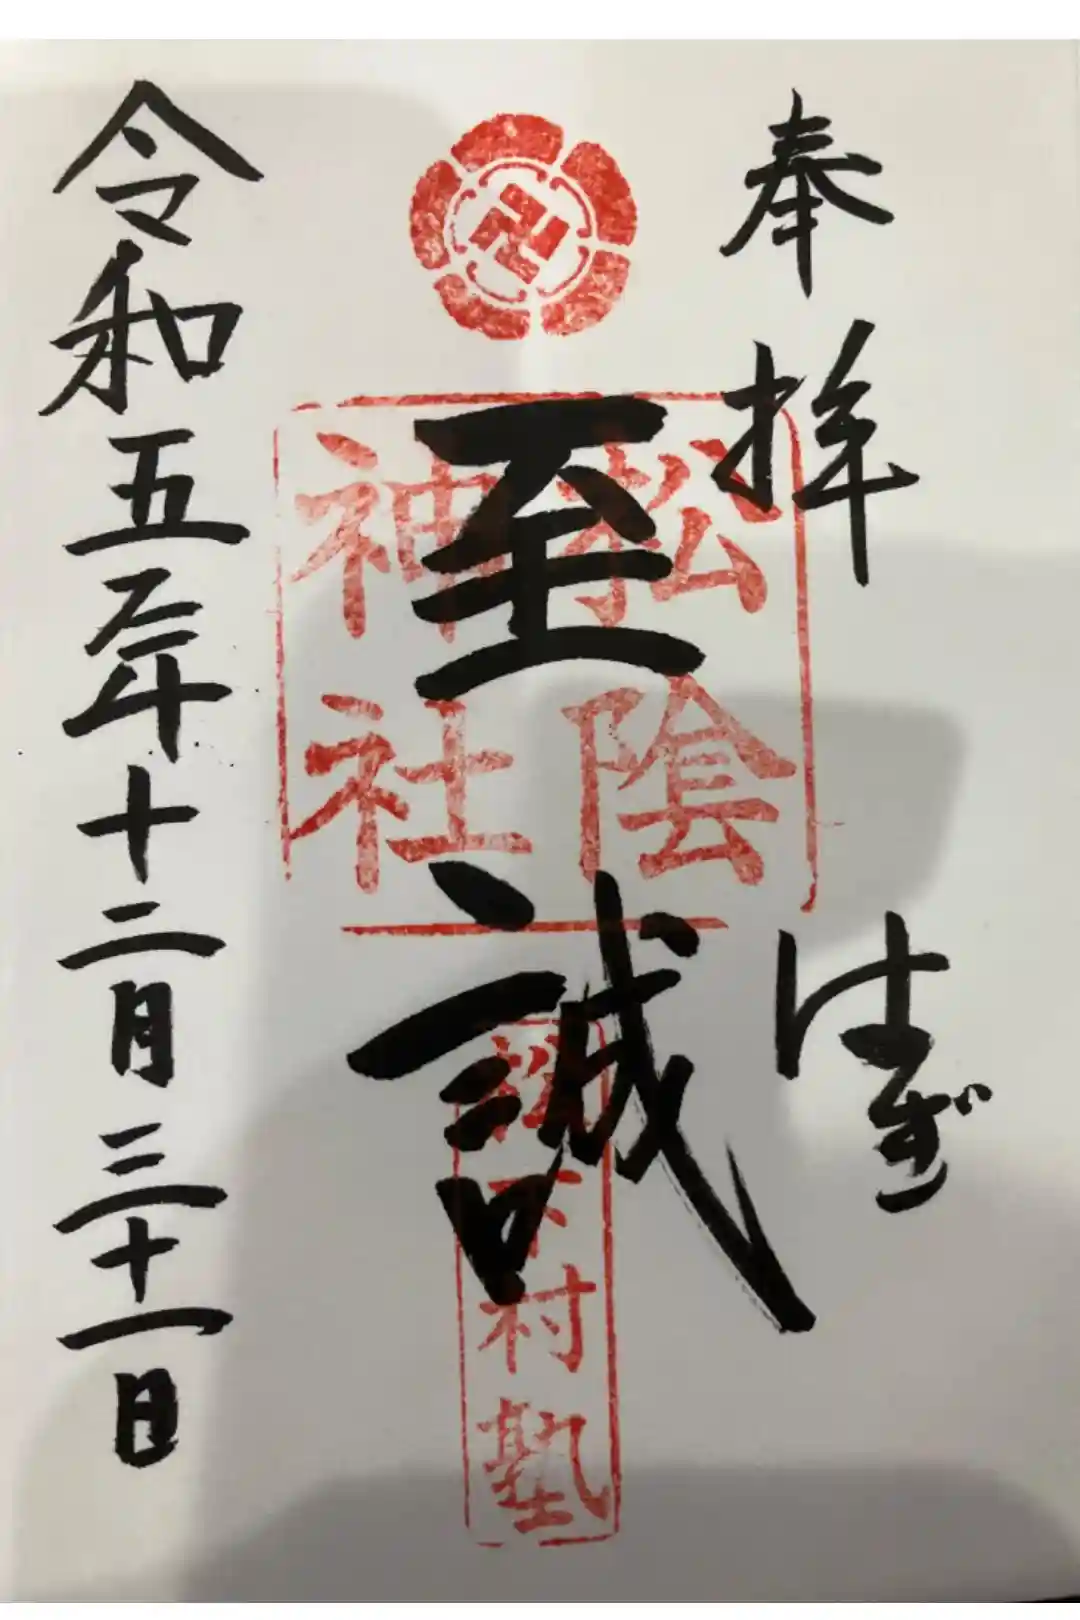 奉拝 はぎ
至誠
松陰
神社
松下村塾
令和五年十二月三十一日